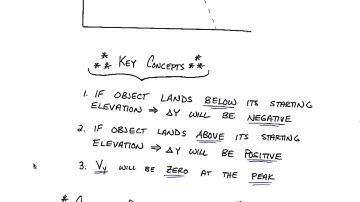 ** KEY CONCEPTS **
1. IF OBJECT LANDS BELOW ITS STARTING
ELEVATION ⇒ ΔY WILL BE NEGATIVE
2. IF OBJECT LANDS ABOVE ITS STARTING
ELEVATION ⇒ ΔY WILL BE POSITIVE
3. Vy WILL BE ZERO AT THE PEAK
*